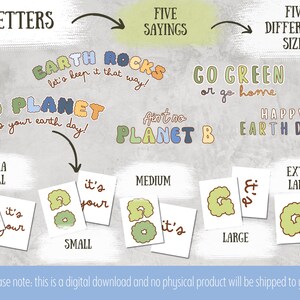 ETTERS
FIVE
SAYINGS
FIV
DIFFER
SIZE
EARTH ROCKS
let's keep it that way!
GO GREEN
or go home
PLANET
s your earth day!
Ain't no
PLANET B
HAPPY
EARTH
A
L
it's
your
it's
GO
SMALL
MEDIUM
GO
LARGE
G
it's
EXT
LA
ase note: this is a digital download and no physical product will be shipped to